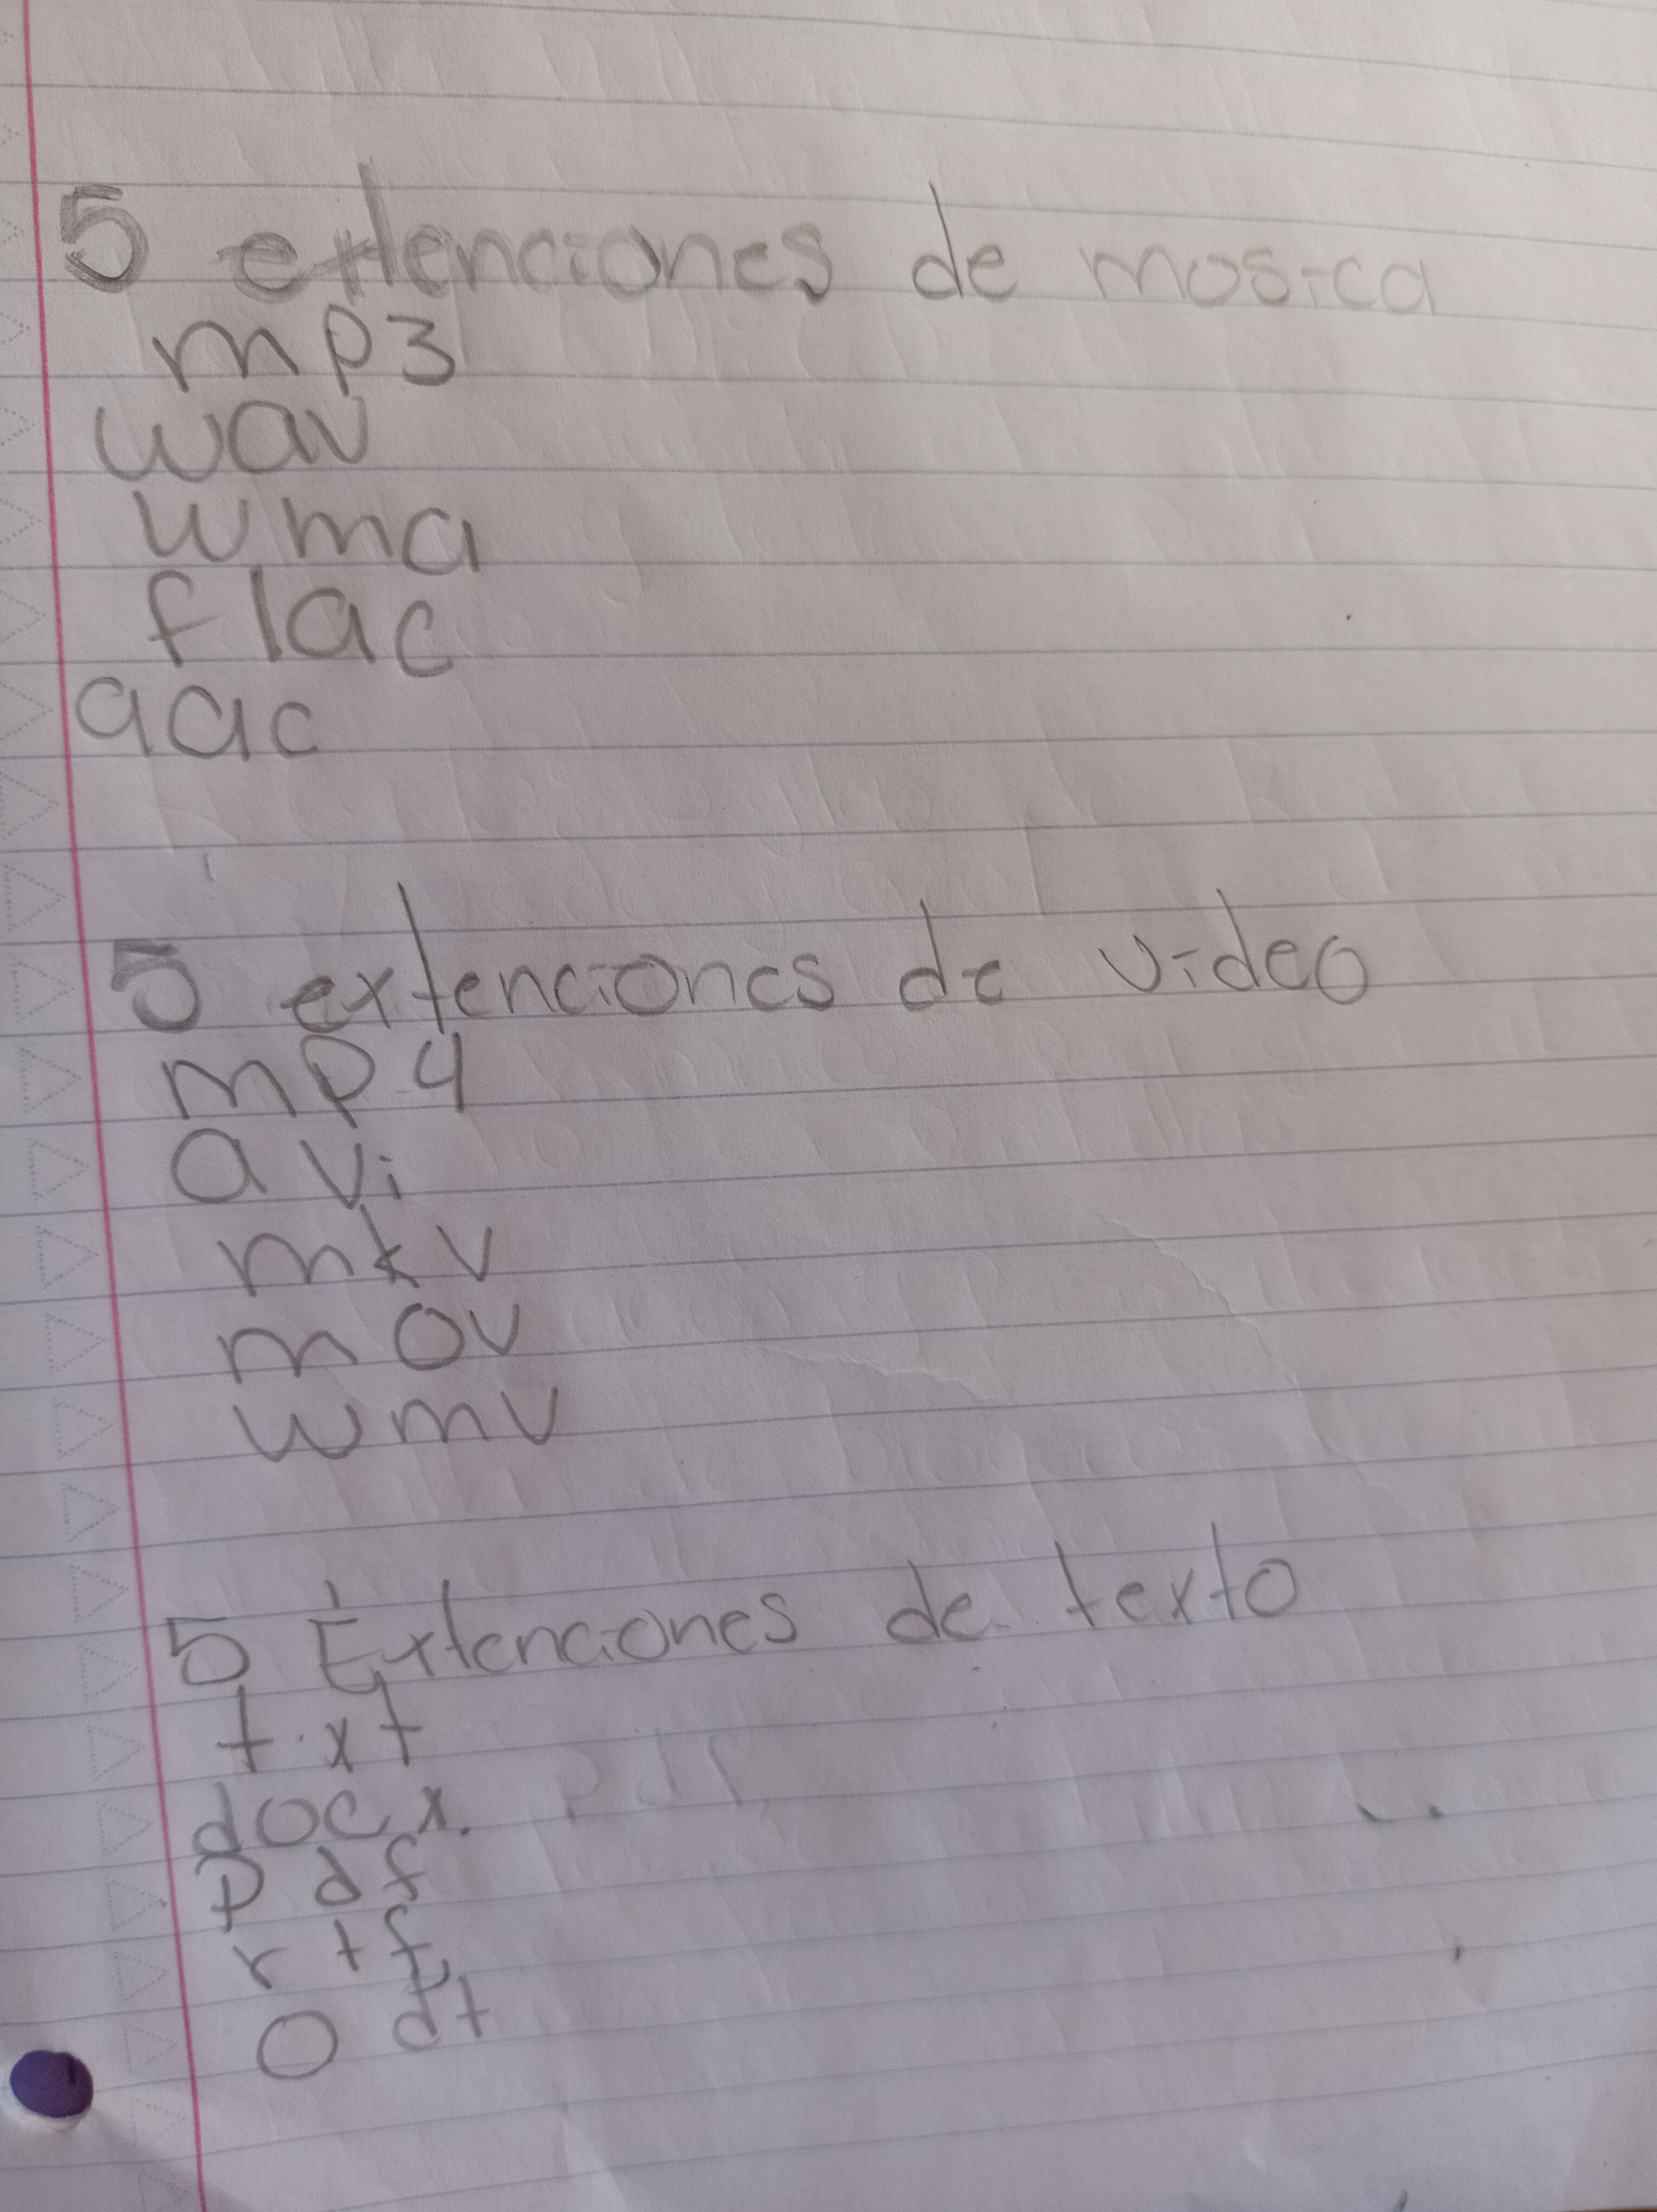 5 extenciones de mosica
mp3
wav
wma
flac
aac
5 extenciones de video
mp4
avi
mkv
mov
wmv
5 Extenciones de texto
txt
docx.
pdf
rtf
odt